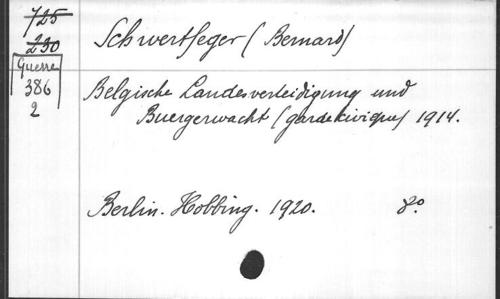 725
230
Guerre
386
2
Schwertfeger (Bernard)
Belgische Landesverteidigung und
Buergerwacht (garde civique) 1914.
Berlin. Hobbing. 1920. 8°